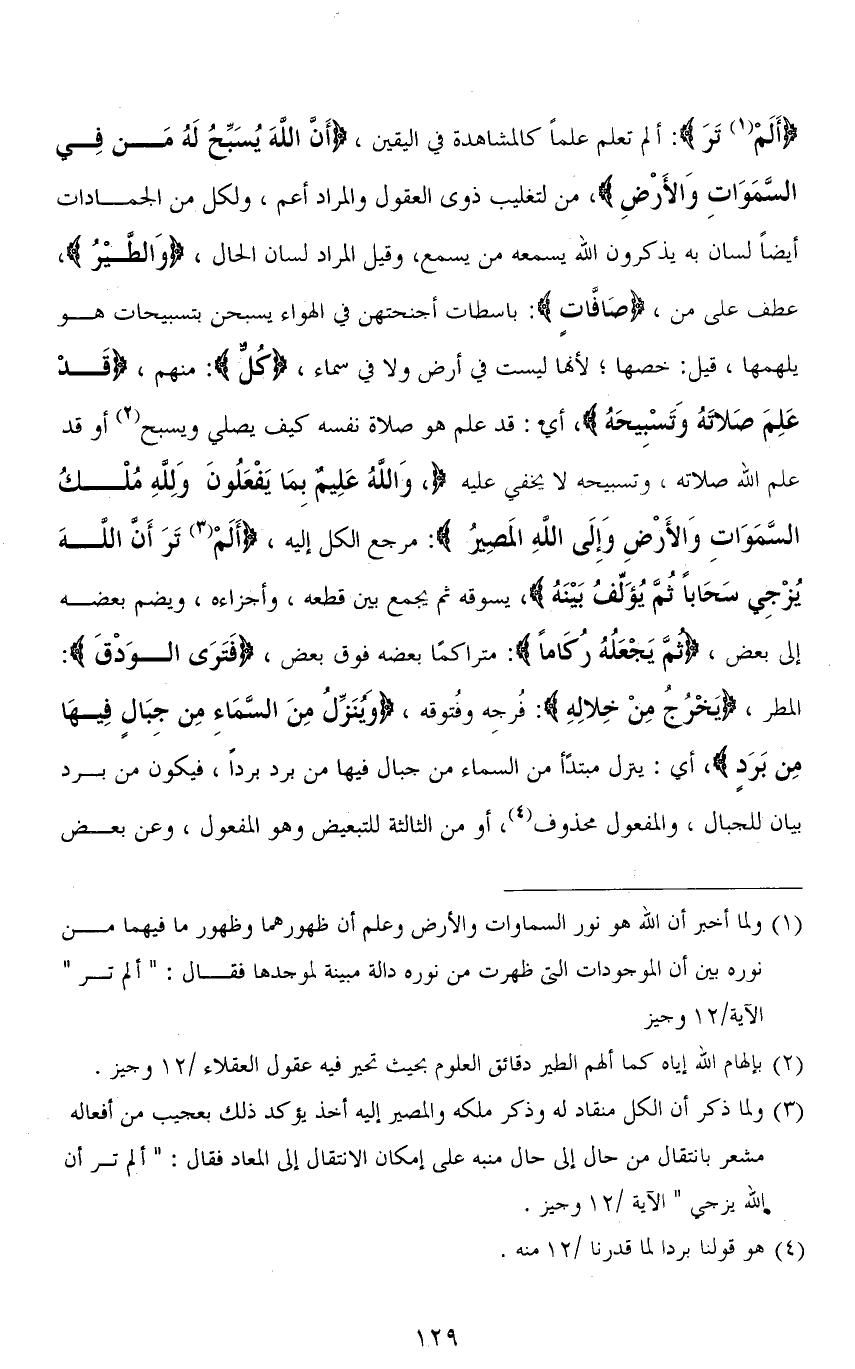 ﴿أَلَمْ(١) تَرَ﴾: ألم تعلم علماً كالمشاهدة في اليقين ، ﴿أَنَّ اللَّهَ يُسَبِّحُ لَهُ مَن فِي
السَّمَوَاتِ وَالأَرْضِ﴾، من لتغليب ذوى العقول والمراد أعم ، ولكل من الجمادات
أيضاً لسان به يذكرون الله يسمعه من يسمع، وقيل المراد لسان الحال ، ﴿وَالطَّيْرُ﴾،
عطف على من ، ﴿صَافَّاتٍ﴾: باسطات أجنحتهن في الهواء يسبحن بتسبيحات هو
يلهمها ، قيل: خصها ؛ لأنها ليست في أرض ولا في سماء ، ﴿كُلٌّ﴾: منهم ، ﴿قَدْ
عَلِمَ صَلاتَهُ وَتَسْبِيحَهُ﴾، أي : قد علم هو صلاة نفسه كيف يصلي ويسبح(٢) أو قد
علم الله صلاته ، وتسبيحه لا يخفي عليه ﴿، وَاللَّهُ عَلِيمٌ بِمَا يَفْعَلُونَ وَلِلَّهِ مُلْكُ
السَّمَوَاتِ وَالأَرْضِ وَإِلَى اللَّهِ المَصِيرُ ﴾: مرجع الكل إليه ، ﴿أَلَمْ(٣) تَرَ أَنَّ اللَّهَ
يُزْجِي سَحَاباً ثُمَّ يُؤَلِّفُ بَيْنَهُ﴾، يسوقه ثم يجمع بين قطعه ، وأجزاءه ، ويضم بعضه
إلى بعض ، ﴿ثُمَّ يَجْعَلُهُ رُكَاماً﴾: متراكمًا بعضه فوق بعض ، ﴿فَتَرَى الوَدْقَ﴾:
المطر ، ﴿يَخْرُجُ مِنْ خِلالِهِ﴾: فُرجه وفُتوقه ، ﴿وَيُنَزِّلُ مِنَ السَّمَاءِ مِن جِبَالٍ فِيهَا
مِن بَرَدٍ﴾، أي : ينزل مبتدًأ من السماء من جبال فيها من برد برداً ، فيكون من برد
بيان للجبال ، والمفعول محذوف(٤)، أو من الثالثة للتبعيض وهو المفعول ، وعن بعض
(١) ولما أخبر أن الله هو نور السماوات والأرض وعلم أن ظهورهما وظهور ما فيهما من
نوره بين أن الموجودات التي ظهرت من نوره دالة مبينة لموحدها فقال : " ألم تر "
الآية/١٢ وجيز
(٢) بإلهام الله إياه كما ألهم الطير دقائق العلوم بحيث تحير فيه عقول العقلاء /١٢ وجيز .
(٣) ولما ذكر أن الكل منقاد له وذكر ملكه والمصير إليه أخذ يؤكد ذلك بعجيب من أفعاله
مشعر بانتقال من حال إلى حال منبه على إمكان الانتقال إلى المعاد فقال : " ألم تر أن
الله يزجي " الآية /١٢ وجيز .
(٤) هو قولنا بردا لما قدرنا /١٢ منه .
١٢٩